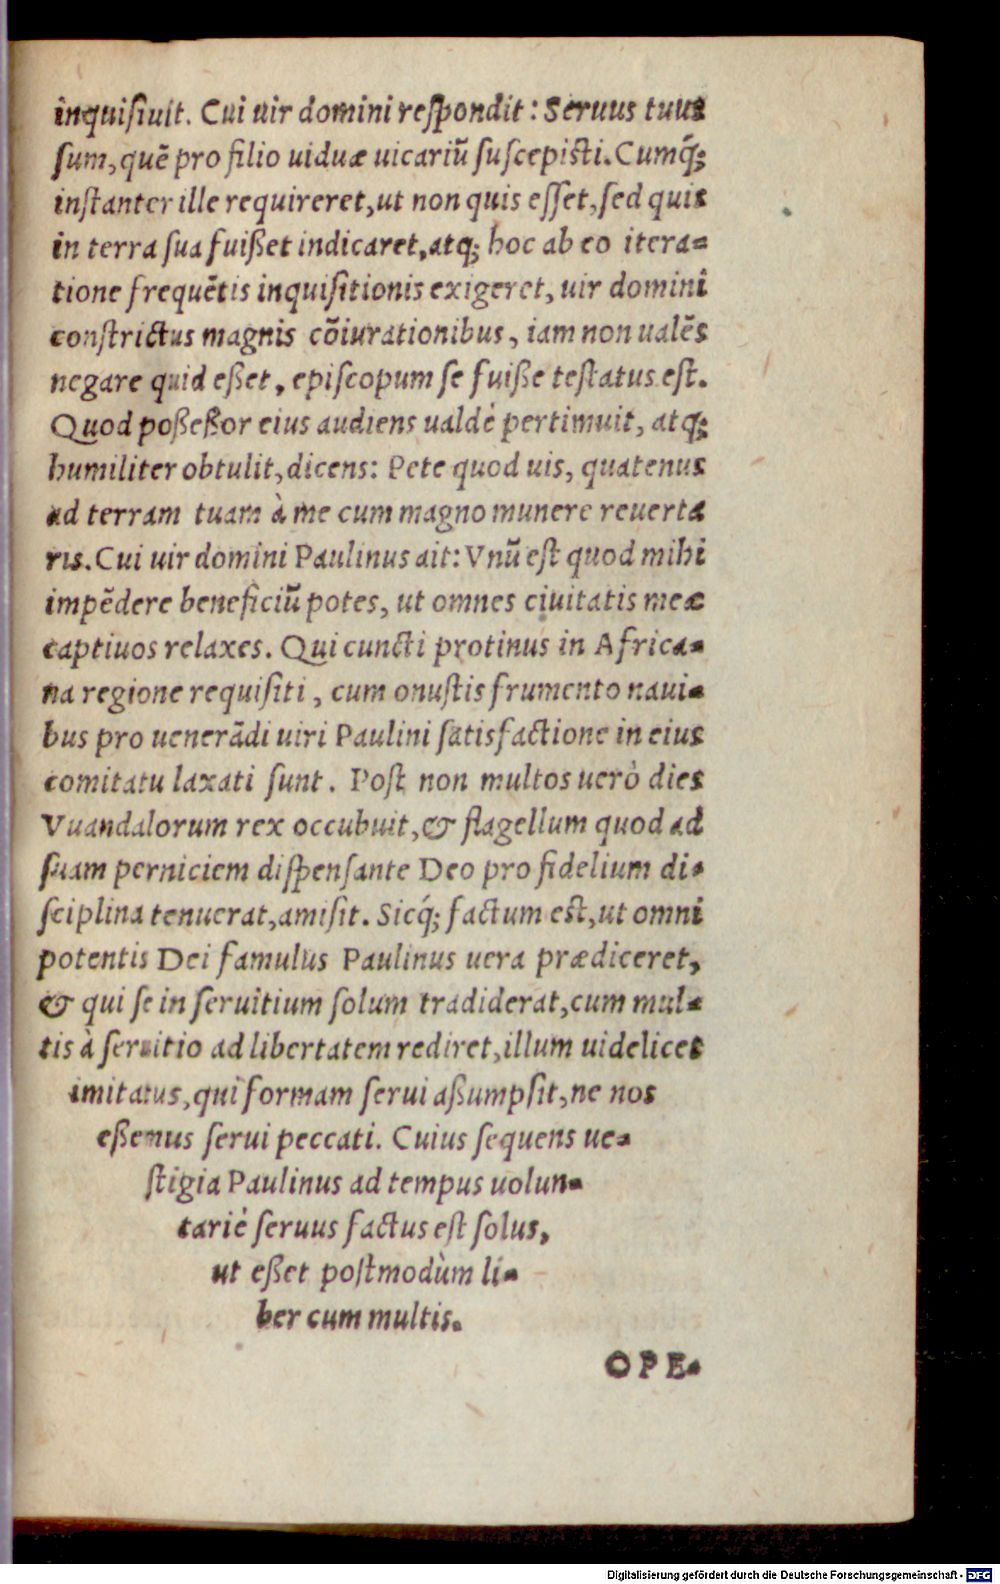 inquisiuit. Cui uir domini respondit: Seruus tuus
sum, quē pro filio uiduæ uicariū suscepisti. Cumq́;
instanter ille requireret, ut non quis esset, sed quis
in terra sua fuißet indicaret, atq; hoc ab eo itera-
tione frequētis inquisitionis exigeret, uir domini
constrictus magnis cōiurationibus, iam non ualēs
negare quid eßet, episcopum se fuiße testatus est.
Quod poßeßor eius audiens ualdè pertimuit, atq;
humiliter obtulit, dicens: Pete quod uis, quatenus
ad terram tuam à me cum magno munere reuerta
ris. Cui uir domini Paulinus ait: Vnū est quod mihi
impēdere beneficiū potes, ut omnes ciuitatis meæ
captiuos relaxes. Qui cuncti protinus in Africa-
na regione requisiti, cum onustis frumento naui-
bus pro uenerādi uiri Paulini satisfactione in eius
comitatu laxati sunt. Post non multos uerò dies
Vuandalorum rex occubuit, & flagellum quod ad
suam perniciem dispensante Deo pro fidelium di-
sciplina tenuerat, amisit. Sicq́; factum est, ut omni
potentis Dei famulus Paulinus uera prædiceret,
& qui se in seruitium solum tradiderat, cum mul-
tis à seruitio ad libertatem rediret, illum uidelicet
imitatus, qui formam serui aßumpsit, ne nos
eßemus serui peccati. Cuius sequens ue-
stigia Paulinus ad tempus uolun-
tariè seruus factus est solus,
ut eßet postmodùm li-
ber cum multis.
OPE-
Digitalisierung gefördert durch die Deutsche Forschungsgemeinschaft - DFG